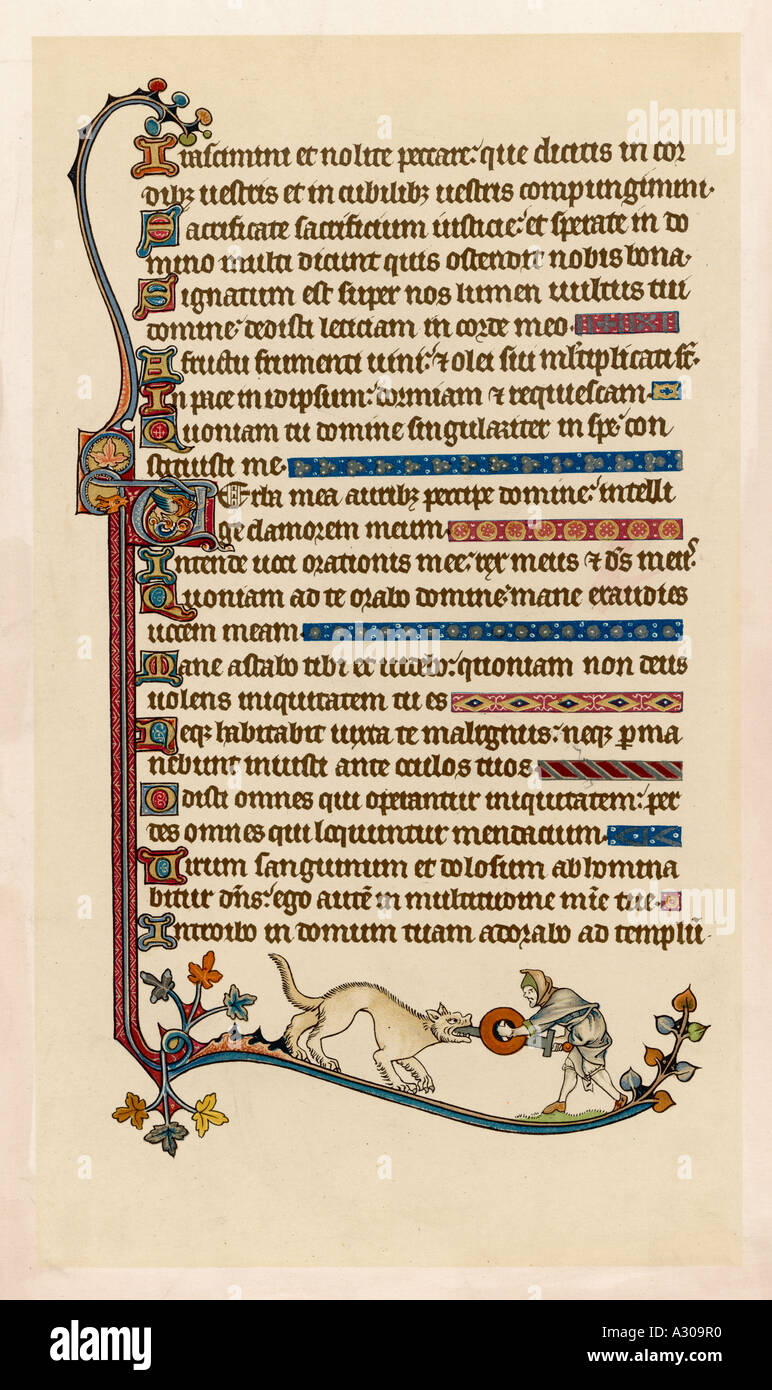 Irascimini et nolite peccare: que dicitis in cor
dibꝫ uestris et in cubilibꝫ uestris compungimini.
Sacrificate sacrificium iusticie: et sperate in do
mino multi dicunt quis ostendit nobis bona.
Signatum est super nos lumen uultus tui
domine: dedisti leticiam in corde meo.
A fructu frumenti uini: ⁊ olei sui mltiplicati st̄.
In pace in idipsum: dormiam ⁊ requiescam.
Quoniam tu domine singulariter in spe: con
stituisti me.
Uerba mea auribꝫ percipe domine: intelli
ge clamorem meum.
Intende uoci orationis mee: rex meus ⁊ ds̄ meus.
Quoniam ad te orabo domine: mane exaudies
uocem meam.
Mane astabo tibi et uidebo: quoniam non deus
uolens iniquitatem tu es
Neqꝫ habitabit iuxta te malignus: neqꝫ ꝑma
nebunt iniusti ante oculos tuos.
Odisti omnes qui operantur iniquitatem: per
des omnes qui loquuntur mendacium.
Uirum sanguinum et dolosum abhomina
bitur dn̄s: ego autē in multitudine mīe tue.
Introibo in domum tuam adorabo ad templū
alamy
alamy
Image ID: A309R0
www.alamy.com